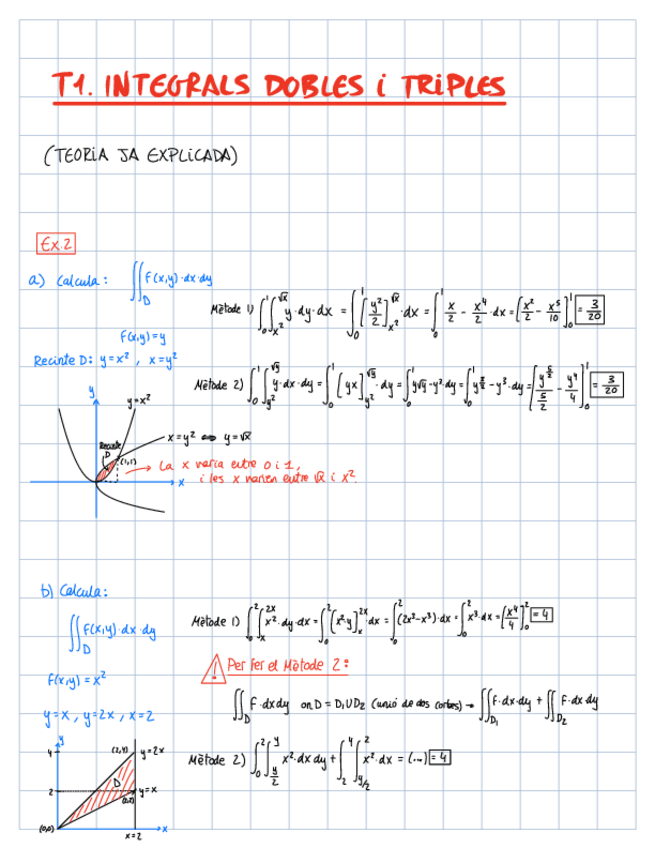 T1. INTEGRALS DOBLES i TRIPLES
(TEORIA JA EXPLICADA)
Ex.2
a) Calcula: ∬_D f(x,y)·dx·dy
f(x,y)=y
Recinte D: y=x², x=y²
Mètode 1) ∫_0^1 ∫_{x²}^{√x} y·dy·dx = ∫_0^1 [y²/2]_{x²}^{√x} ·dx = ∫_0^1 x/2 - x⁴/2 ·dx = [x²/2 - x⁵/10]_0^1 = 3/20
Mètode 2) ∫_0^1 ∫_{y²}^{√y} y·dx·dy = ∫_0^1 [yx]_{y²}^{√y} ·dy = ∫_0^1 y√y - y²·dy = ∫_0^1 y^{3/2} - y³·dy = [y^{5/2}/(5/2) - y⁴/4]_0^1 = 3/20
y
y=x²
x=y² ⇔ y=√x
Recinte
D
(1,1)
x
La x varia entre 0 i 1,
i les x varien entre √x i x².
b) Calcula:
∬_D f(x,y)·dx·dy
f(x,y) = x²
y=x, y=2x, x=2
Mètode 1) ∫_0^2 ∫_x^{2x} x²·dy·dx = ∫_0^2 [x²·y]_x^{2x} dx = ∫_0^2 (2x²-x³)·dx = ∫_0^2 x³·dx = [x⁴/4]_0^2 = 4
! Per fer el Mètode 2:
∬_D f·dxdy on D = D1 U D2 (unió de dos corbes) → ∬_{D1} f·dx·dy + ∬_{D2} f·dx·dy
Mètode 2) ∫_0^2 ∫_{y/2}^y x²·dx dy + ∫_2^4 ∫_{y/2}^2 x²·dx = (...) = 4
y
4
(2,4)
y=2x
D
2
(2,2)
y=x
(0,0)
x
x=2